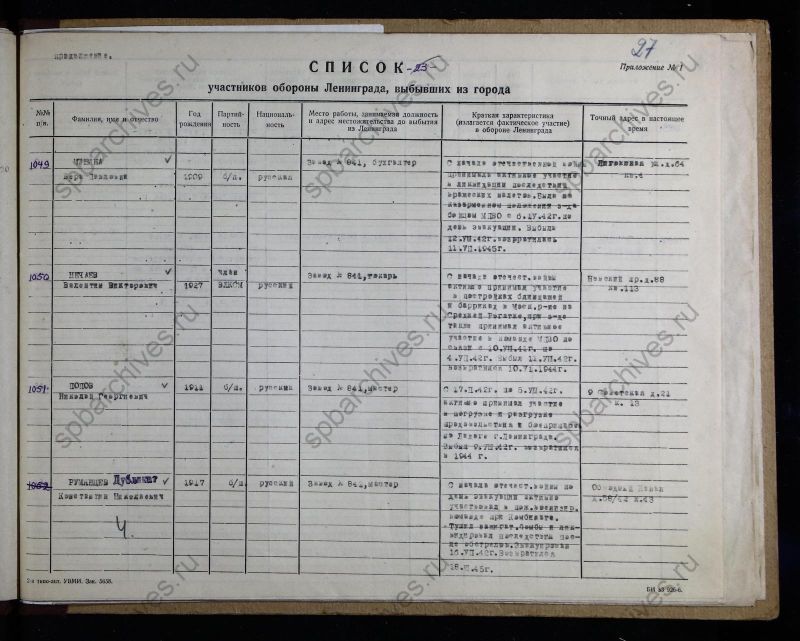 продолжение.
27
СПИСОК -23-
Приложение № 1
участников обороны Ленинграда, выбывших из города
№№ п/п.
Фамилия, имя и отчество
Год рождения
Партийность
Националь-ность
Место работы, занимаемая должность и адрес местожительства до выбытия из Ленинграда
Краткая характеристика (излагается фактическое участие) в обороне Ленинграда
Точный адрес в настоящее время
1049
Вера Павловна
1909
б/п.
русская
Завод № 841, бухгалтер
С начала отечественной войны
принимала активное участие
в ликвидации последствий
вражеских налетов. Была на
казарменном положении
МПВО с 6.IУ.42г. по
день эвакуации. Выбыла
12.УП.42г. возвратилась
11.УП.1945г.
ул. д.64
кв.4
1050
НЕЧАЕВ
Валентин Викторович
1927
член
ВЛКСМ
русский
Завод № 841, токарь
С начала отечест. войны
активно принимал участие
в постройках блиндажей
и баррикад в Моск.р-не на
Средней Рогатке, при
также принимал активное
участие в команде МПВО по
связи с 10.УП.41г. по
4.УП.42г. Выбыл 11.УП.42г.
возвратился 10.У1.1944г.
Невский пр. д.88
кв.113
1051
ПОПОВ
Николай Георгиевич
1911
б/п.
русский
Завод № 841, мастер
С 17.П.42г. по 5.УП.42г.
активно принимал участие
в погрузке и разгрузке
продовольствия и боеприпасов
на Ладоге г.Ленинграда.
Выбыл 9.УП.42г. возвратился
в 1944 г.
9 Советская д.21
к. 13
1052
РУМЯНЦЕВ Дубликат
Константин Николаевич
Ч.
1917
б/п.
русский
Завод № 841, мастер
С начала отечест. войны по
день эвакуации активно
участвовал в пож.
команде при Комбинате.
Тушил зажигат. бомбы и лик-
видировал последствия пос-
ле обстрелов. Эвакуирован
16.УП.42г. Возвратился
18.Ш.45г.
Обводный Канал
к.43
2-я типо-лит. УВМИ. Зак. 5658.
spbarchives.ru
spbarchives.ru
spbarchives.ru
spbarchives.ru
spbarchives.ru
spbarchives.ru
spbarchives.ru
spbarchives.ru
spbarchives.ru